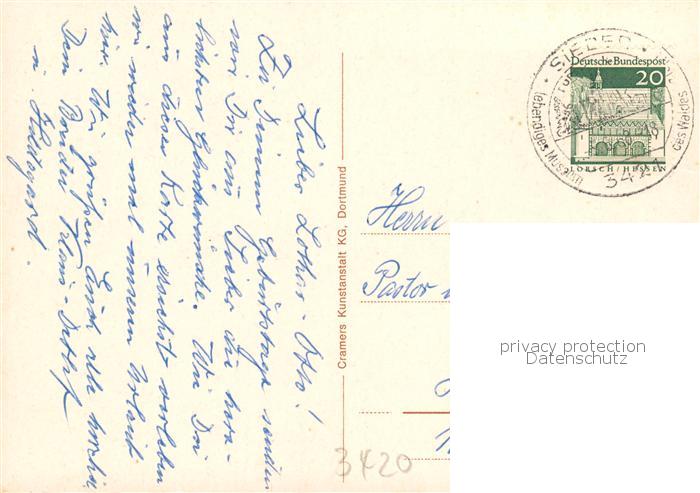 Lieber Lothar-Otto!
Zu Deinem Geburtstage senden
wir Dir aus Sieber die herz-
lichsten Glückwünsche. Wie Du
aus dieser Karte ersiehst verleben
wir wieder mal unseren Urlaub
hier. Wir grüßen Euch alle herzlich
Dein Bruder Klaus-Detlef
u. Hildegard.
Cramers Kunstanstalt KG, Dortmund
SIEBER
lebendiges Museum
des Waldes
3421
Deutsche Bundespost
20
LORSCH/HESSEN
Herrn
Pastor
privacy protection
Datenschutz
3420